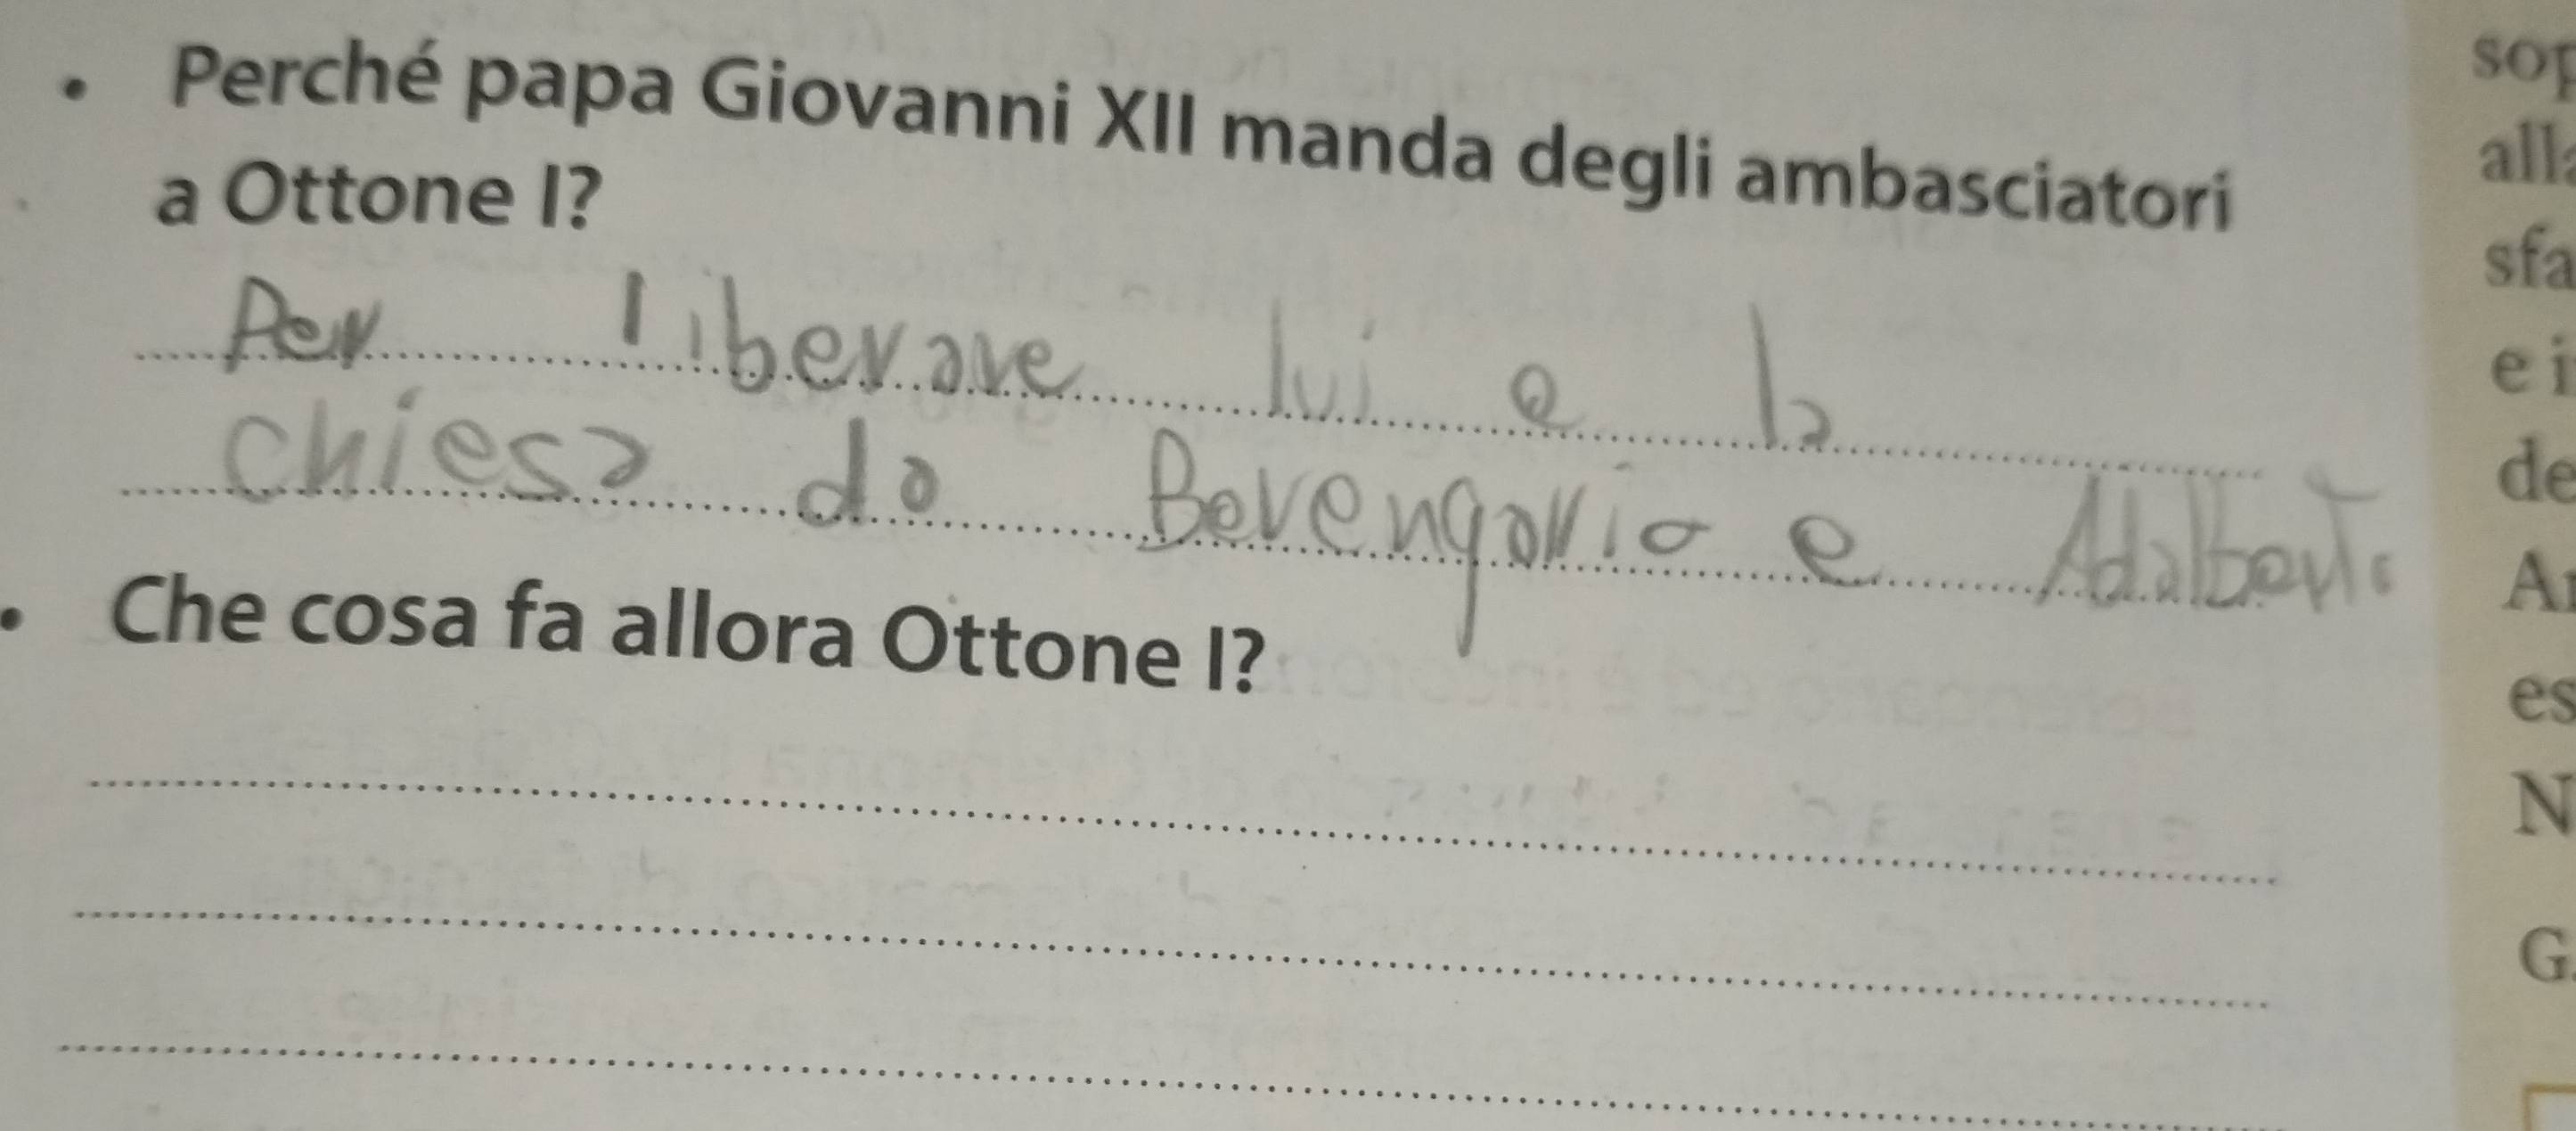 • Perché papa Giovanni XII manda degli ambasciatori
a Ottone I?
Per liberare lui e la
chiesa da Berengario e Adalberto
• Che cosa fa allora Ottone I?
sop
alla
sfa
e i
de
Ar
es
N
G.